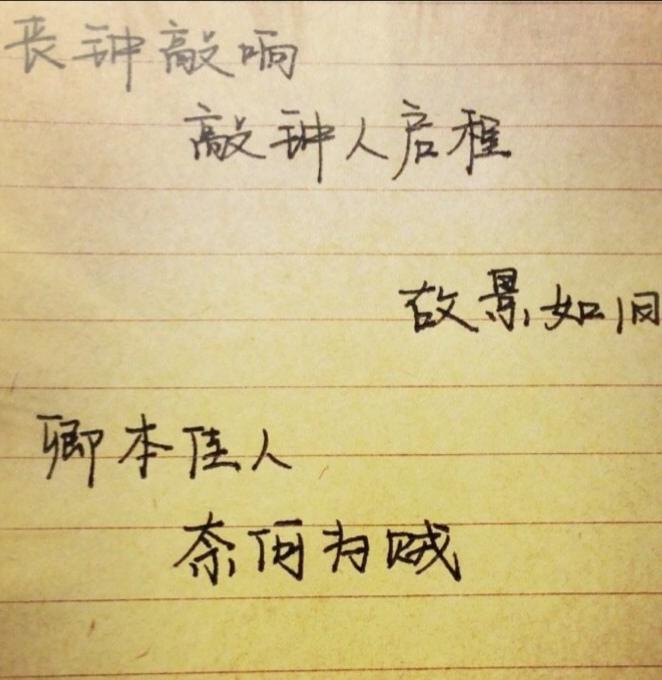 丧钟敲响
敲钟人启程
故景如旧
卿本佳人
奈何为贼